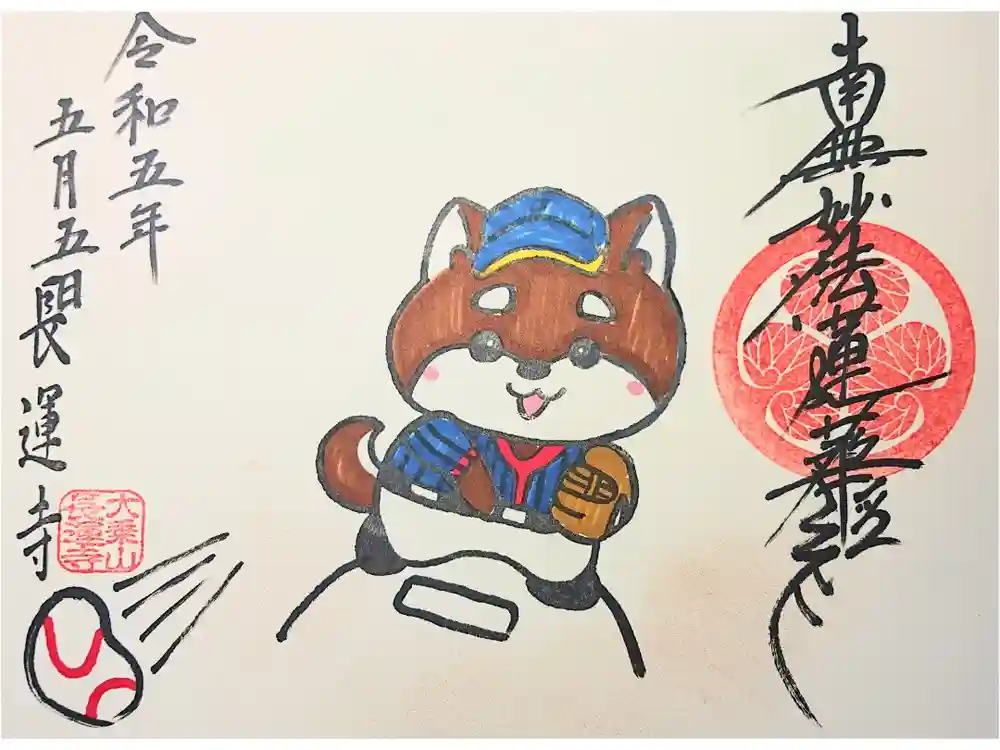 南無妙法蓮華経
令和五年
五月五日
長運寺
大乗山
長運寺